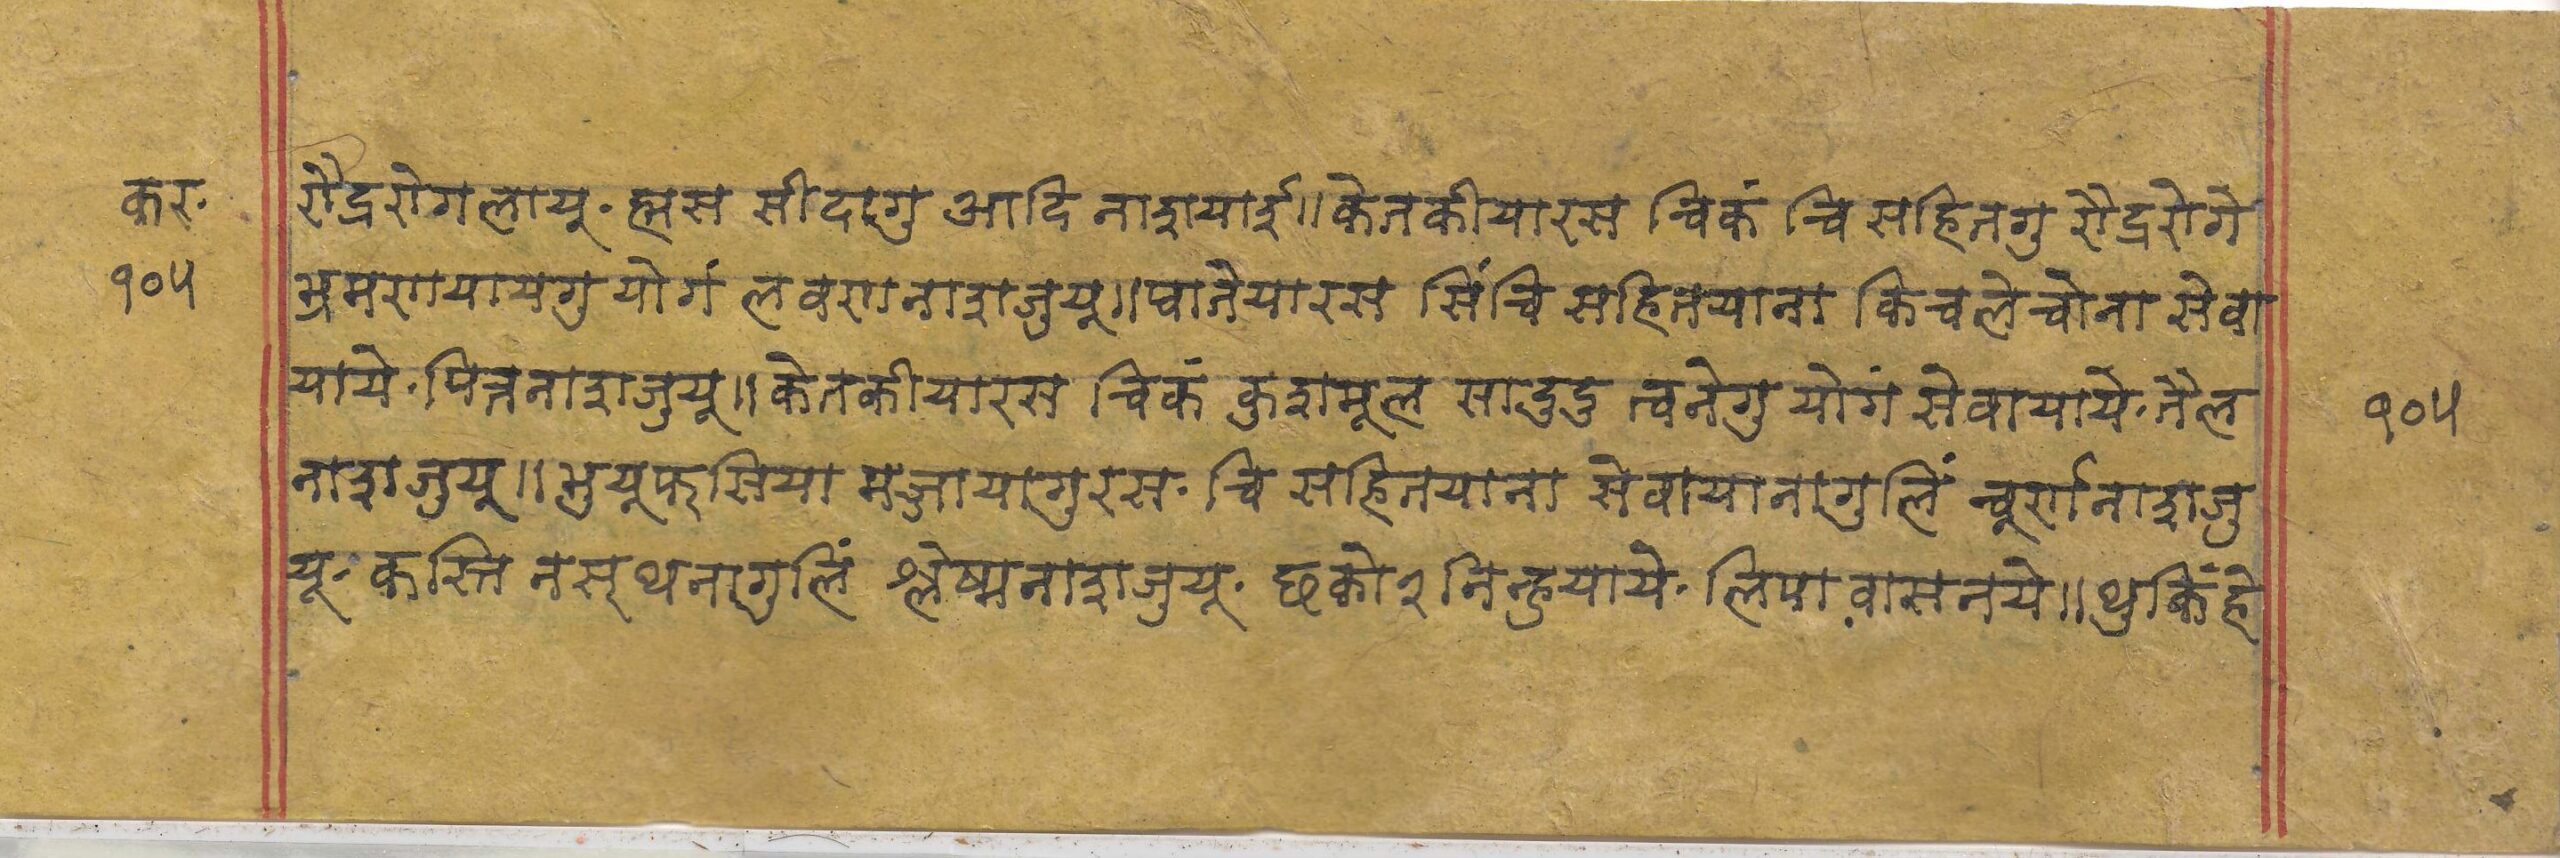 कर·
१०५
रौद्ररोगलायू· ह्मस सीदागु आदि नाशयाई॥ केतकीयारस चिकं चि सहितगु रौद्ररोगे
भ्रमरणयायगु योगं लवणनाशजुयू॥ घ्वातैयारस सिंचि सहितयाना किचलेचोना सेवा
याये· पित्तनाशजुयू॥ केतकीयारस चिकं कुशमूल सादुदु त्वनेगु योगं सेवायाये· तैल
नाशजुयू॥ भुयूफसिया मज्जायागुरस· चि सहितयाना सेवायानागुलिं चूर्णनाशजु
यू· कस्ति नस्थनागुलिं श्लेष्मनाशजुयू· छको२ निन्हुयाये· लिपा वासनये॥ थुकिंहे
१०५